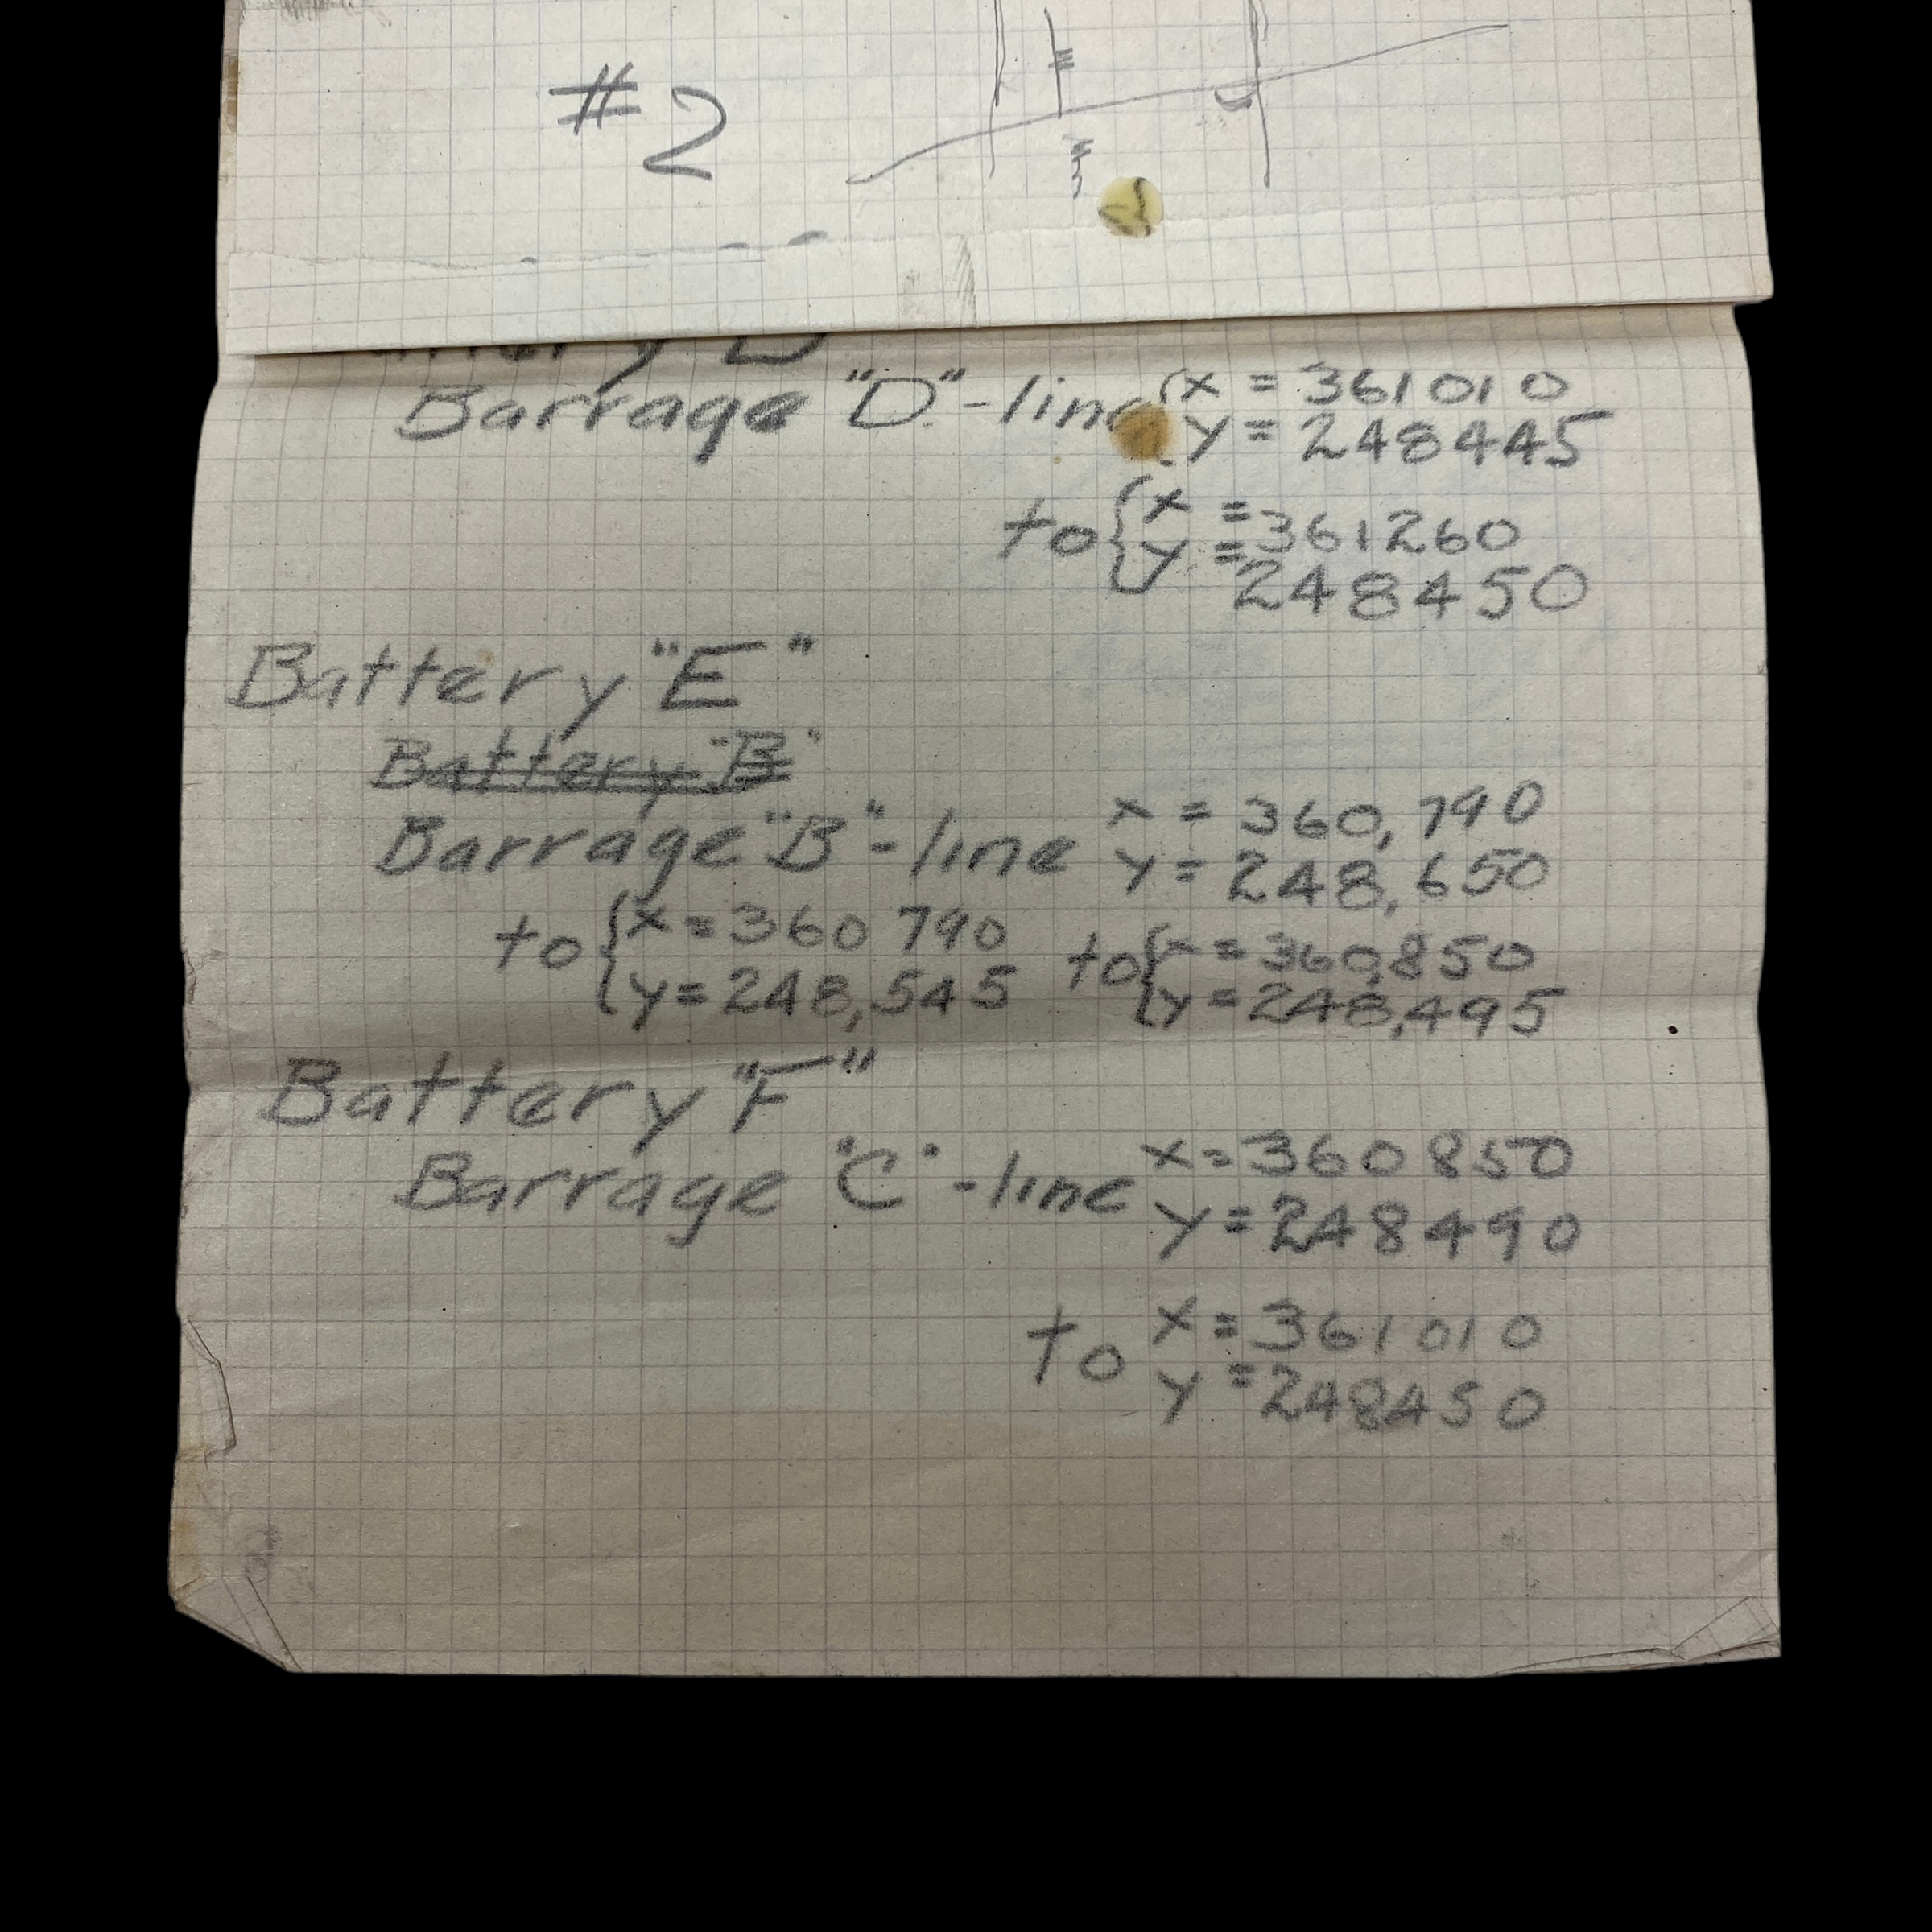 #2
Barrage "D" - line { x = 361010
y = 248445
to { x = 361260
y = 248450
Battery "E"
Battery "B"
Barrage "B" - line x = 360,790
y = 248,650
to { x = 360 790 to { x = 360,850
y = 248,545 y = 248,495
Battery "F"
Barrage "C" - line x = 360 850
y = 248490
to x = 361010
y = 248450